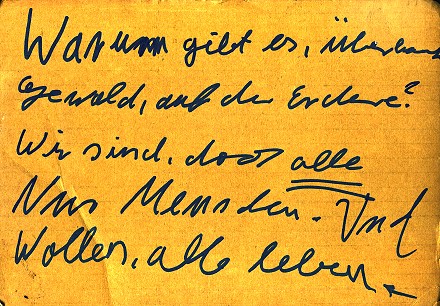 Warum gibt es, überhaupt
Gewald, auf der Erde?
Wir sind, doch alle
Nur Menschen. Und
Wollen, alle leben